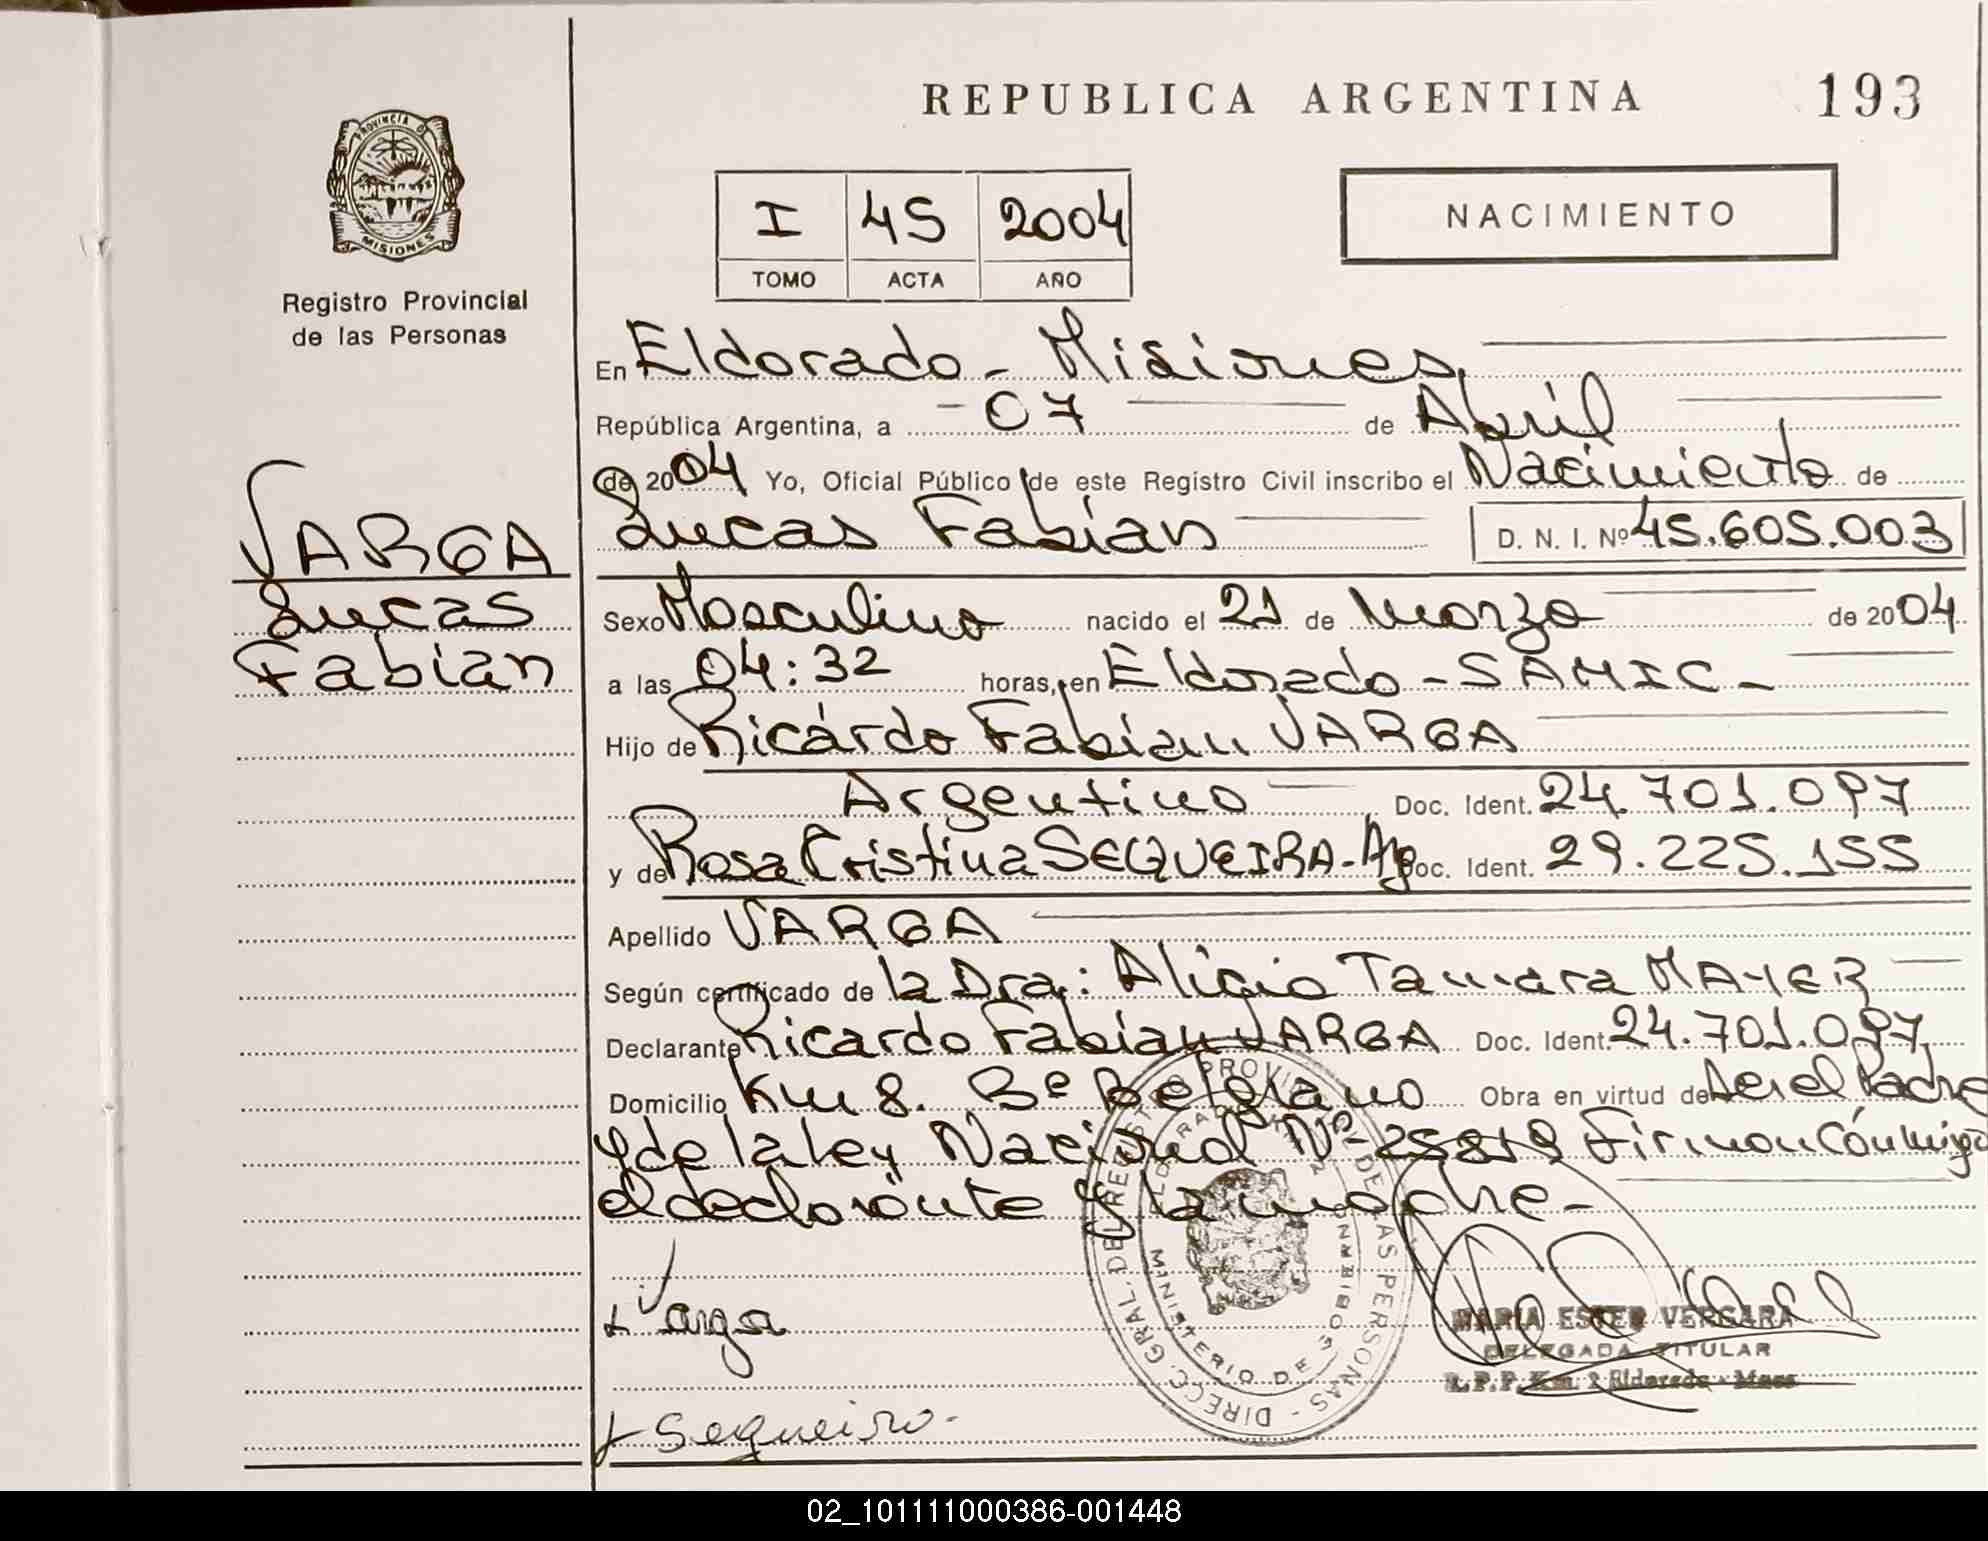 REPUBLICA ARGENTINA 193
PROVINCIA DE
MISIONES
Registro Provincial
de las Personas
I 45 2004
TOMO ACTA AÑO
NACIMIENTO
VARGA
Lucas
Fabian
En Eldorado - Misiones,
República Argentina, a - 07 de Abril
de 2004 Yo, Oficial Público de este Registro Civil inscribo el Nacimiento de
Lucas Fabian D. N. I. Nº 45.605.003
Sexo Masculino nacido el 21 de Marzo de 2004
a las 04:32 horas, en Eldorado - SAMIC -
Hijo de Ricardo Fabian VARGA
Argentino Doc. Ident. 24.701.097
y de Rosa Cristina SEQUEIRA - Arg Doc. Ident. 29.225.155
Apellido VARGA
Según certificado de la Dra.: Alicia Tamara MAYER
Declarante Ricardo Fabian VARGA Doc. Ident. 24.701.097
Domicilio Km 8. Bº Belgrano Obra en virtud de ser el Padre
y de la ley Nacional Nº 25819 Firman cónmigo
el declarante y la madre -
Varga
Sequeira -
DIREC. GRAL. DEL REGISTRO PROVINCIAL DE LAS PERSONAS
MINISTERIO DE GOBIERNO
MARIA ESTER VERGARA
DELEGADA TITULAR
R.P.P. Km. 2 Eldorado - Mnes
02_101111000386-001448